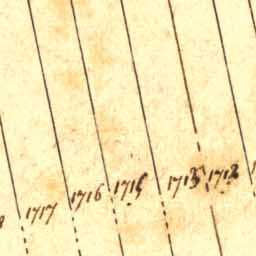 8 1717 1716 1715 1713 1712